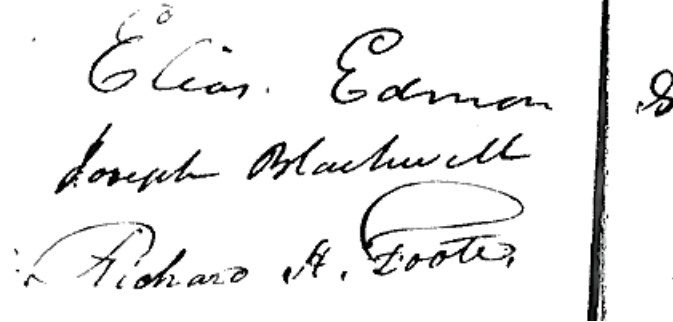 Elias Edmon
Joseph Blackwell
Richard H. Foote,